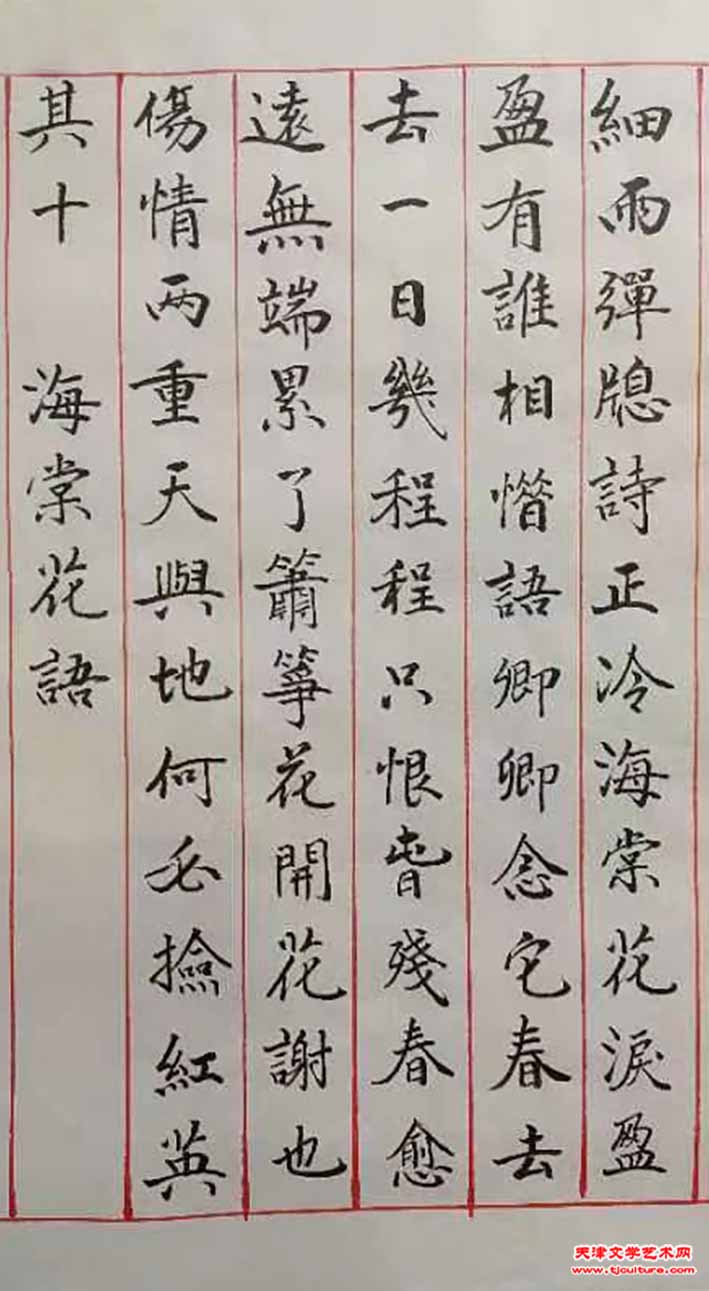 細雨彈牕詩正冷海棠花淚盈
盈有誰相憯語卿卿念它春去
去一日幾程程只恨春殘春愈
遠無端累了簫箏花開花謝也
傷情两重天與地何必撿紅英
其十 海棠花語
天津文学艺术网
www.tjculture.com